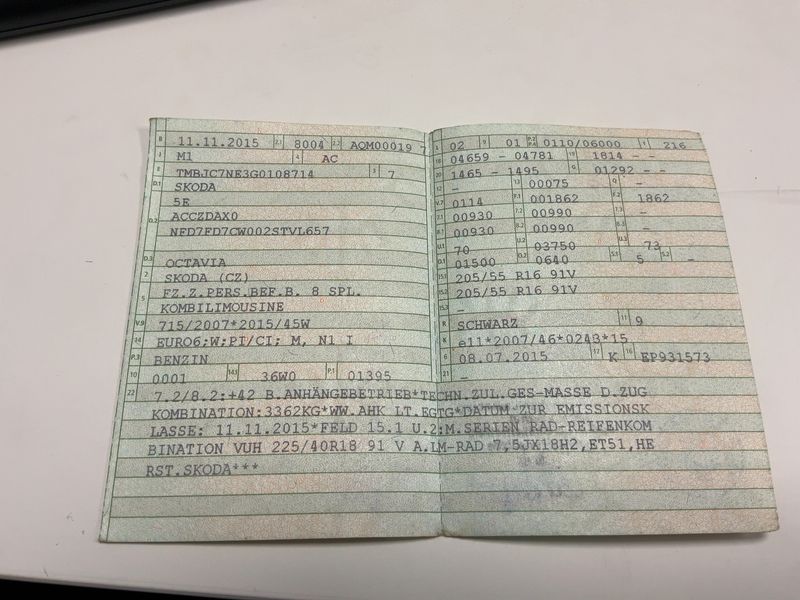 B 11.11.2015 2.1 8004 2.2 AQM00019 7
J M1 4 AC
E TMBJC7NE3G0108714 3 7
D.1 SKODA
5E
D.2 ACCZDAX0
NFD7FD7CW002STVL657
D.3 OCTAVIA
2 SKODA (CZ)
5 FZ.Z.PERS.BEF.B. 8 SPL.
KOMBILIMOUSINE
V.9 715/2007*2015/45W
14 EURO6;W;PI/CI; M, N1 I
P.3 BENZIN
10 0001 14.1 36W0 P.1 01395
L 02 9 01 P.2 P.4 0110/06000 T 216
18 04659 - 04781 19 1814 - -
20 1465 - 1495 G 01292 - -
12 - 13 00075 Q -
V.7 0114 F.1 001862 F.2 1862
7.1 00930 7.2 00990 7.3 -
8.1 00930 8.2 00990 8.3 -
U.1 70 U.2 03750 U.3 73
O.1 01500 O.2 0640 S.1 5 S.2 -
15.1 205/55 R16 91V
15.2 205/55 R16 91V
15.3 -
R SCHWARZ 11 9
K e11*2007/46*0243*15
6 08.07.2015 17 K 16 EP931573
21 -
22 7.2/8.2:+42 B.ANHÄNGEBETRIEB*TECHN.ZUL.GES-MASSE D.ZUG
KOMBINATION:3362KG*WW.AHK LT.EGTG*DATUM ZUR EMISSIONSK
LASSE: 11.11.2015*FELD 15.1 U.2:M.SERIEN RAD-REIFENKOM
BINATION VUH 225/40R18 91 V A.LM-RAD 7,5JX18H2,ET51,HE
RST.SKODA***